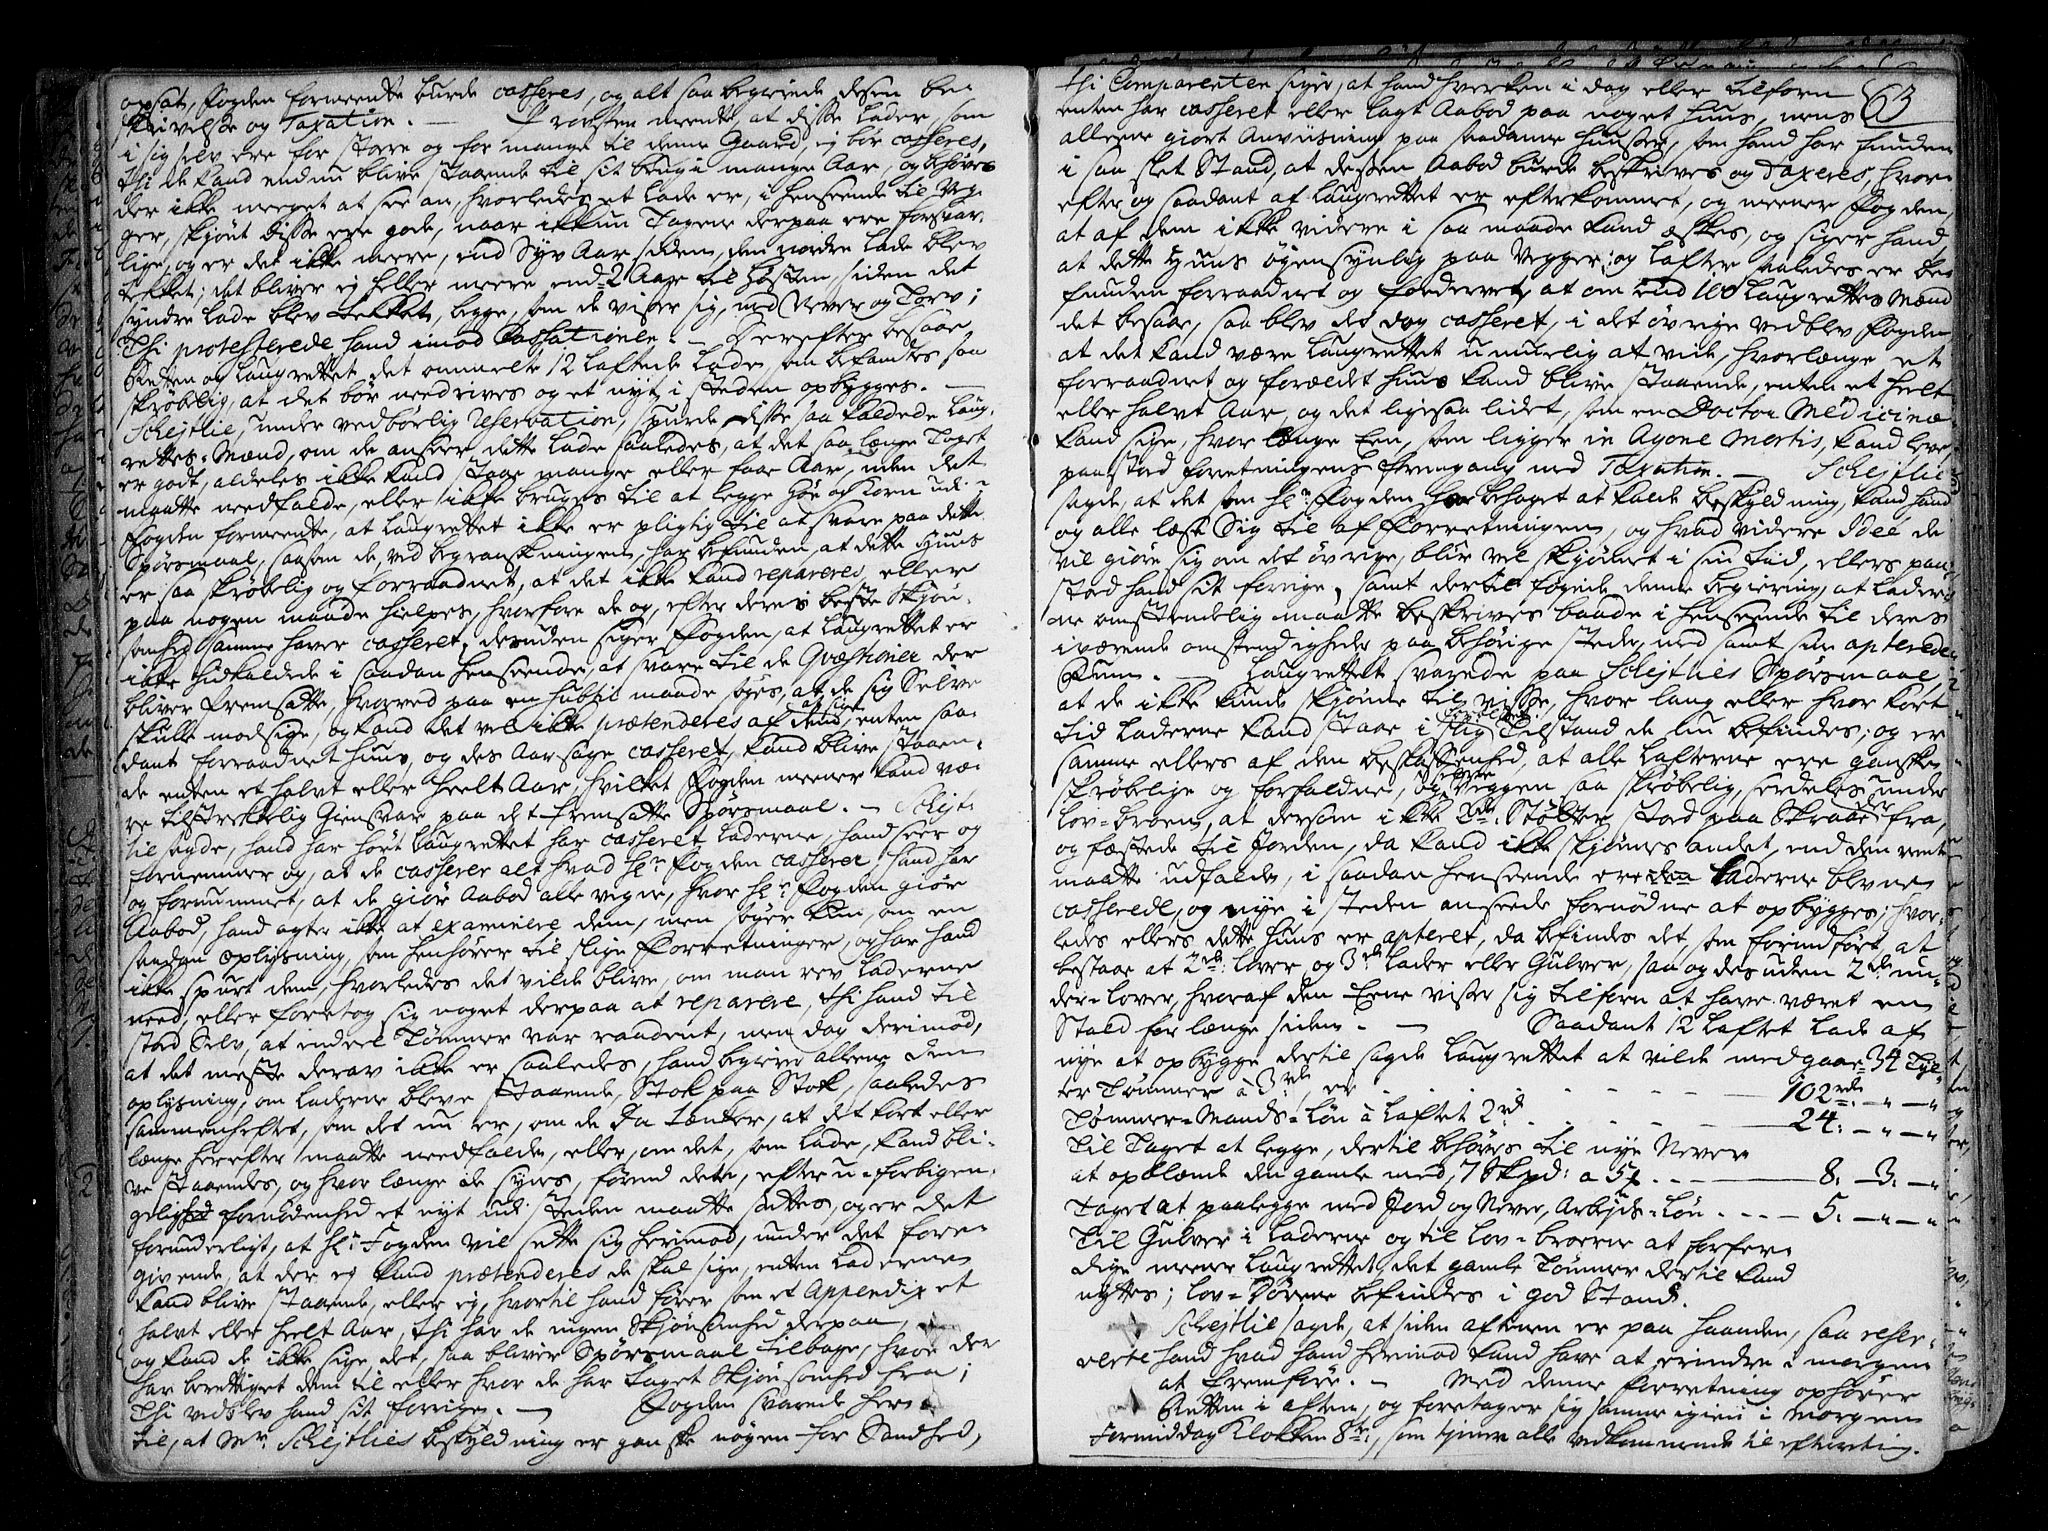 opsat, Fogden formeente burde casseres, og alt saa begierede desen be-
skrivelse og Taxation. — Provsten meente, at disse Lader, som
i sig selv ere for store og for mange til denne Gaard, ej bør casseres,
thi de kand endnu blive staaende til sit brug i mange Aar, og behøves
der ikke meeget at see an, hvorledes et Lade er, i henseende til Veg-
ger, skjønt disse ere gode, naar ikkun Tagene derpaa ere forsvar-
lige, og er det ikke meere, end Syv Aar siden, den nordre Lade blev
tekket; det bliver ej heller meere end 2 Aar til Høsten, siden det
syndre Lade blev tekket, begge, som de viser sig, med Never og Torv;
Thi protesterede hand imod Cassationen. — Derefter besaae
Retten og Laugrettet det ommelte 12 laftede Lade, som befandtes saa
skrøbelig, at det bør needrives og et nyt i steden opbygges. —
Schejtlie, under vedbørlig Reservation, spurde disse saa kaldede Laug-
rettes-Mænd, om de anseer dette Lade saaledes, at det saa længe Taget
er godt, aldeles ikke kand staae mange eller faae Aar, uden det
maatte nedfalde, eller ikke bruges til at legge Høe og Korn udi;
Fogden formeente, at Laugrettet ikke er pligtig til at svare paa dette
Spørsmaal, saasom de, ved begranskningen, har befunden, at dette Huus
er saa skrøbelig og forraadnet, at det ikke kand repareres, eller
paa nogen maade hielpes, hvorfore de og, efter deres beste Skjøn-
somhed samme haver casseret; desuden siger Fogden, at Laugrettet er
ikke hidkaldede i saadan henseende, at svare til de Qvæstioner der
bliver fremsatte, hvorved paa en subtil maade søges, at de sig Selv
skulle modsige, og kand det vel ikke prætenderes af dem, at sige, enten saa-
dant forraadnet Huus, og des Aarsage casseret, kand blive staaen-
de enten et halvt eller heelt Aar, hvilket Fogden meener kand væ-
re tilstrekkelig Giensvar paa det fremsatte Spørsmaal. — Schejt-
lie sagde, hand har hørt Laugrettet har casseret Laderne, hand seer og
fornemmer og, at de casserer alt hvad Hr. Fogden casserer; hand har
og fornummet, at de giør Aabod alle vegne, hvor Hr. Fogden giør
Aabod, hand agter ikke at examinere dem, men søger kun, om en
saadan Oplysning, som henhører til slige Forretninger, og har hand
ikke spurt dem, hvorledes det vilde blive, om man rev Laderne
need, eller foretog sig noget derpaa at reparere, thi hand til-
stod Selv, at endeel Tømmer var raadent, men dog derimod,
at det meste derav ikke er saaledes, hand begierer alleene den
oplysning, om Laderne bleve staaende, Stok paa Stok, saaledes
sammenheftet, som det nu er, om de da tænker, at det kort eller
længe herefter maatte needfalde, eller, om det, som Lade, kand bli-
ve staaendes, og hvor længe de synes, førend det, efter u-forbigen-
gelighed fornødenhed et nyt udi steden maatte settes, og er det
forunderligt, at Hr. Fogden vil sette sig herimod, under det fore-
givende, at der ej kand prætenderes de skal sige, enten Laderne
kand blive staaende, eller ej, hvortil hand fører som et Appendix et
halvt eller heelt Aar, thi har de ingen Skjønsomhed derpaa,
og kand de ikke sige det, saa bliver Spørsmaal tilbage, hvor der
har berettiget dem til eller hvor de har taget Skjønsomhed fra;
Thi vedblev hand sit forrige. — Fogden svarede her-
til, at Mr. Schejtlies beskyldning er ganske nøgen for Sandhed,
63
thi Comparenten siger, at hand hverken i dag eller tilforn
enten har casseret eller lagt Aabod paa noget Huus, mens
alleene giort Anviisning paa saadanne Huuse, som hand har funden
i saa slet Stand, at dessen Aabod burde beskrives og Taxeres, hvor-
efter og saadant af Laugrettet er efterkommet, og meener Fogden,
at af dem ikke videre i saa maade kand æskes, og siger hand,
at dette Huus øyensynlig paa Vegger og Lafter saaledes er be-
funden forraadnet og fordervet, at om end 100 Laugrettes Mænd
det besaae, saa blev det dog casseret, i det øvrige vedblev Fogden
at det kand være Laugrettet umuelig at vide, hvorlænge et
forraadnet og forældet Huus kand blive staaende, enten et heelt
eller halvt Aar, og det ligesaa lidet, som en Doctor Medicinæ
kand sige, hvor længe Een, som ligger in Agone Mortis, kand leve,
paastod forretningens fremgang med Taxation. — Schejtlie
sagde, at det som Hr. Fogden har behaget at kalde beskyldning, kand hand
og alle læse Sig til af Forretningen, og hvad videre Ideé de
vil giøre sig om det øvrige, blir vel skjønnet i sin tid, ellers paa-
stod hand sit forrige, samt dertil føyede denne begiering, at Lader-
ne omstendelig maatte beskrives baade i henseende til deres
iværende omstendigheder paa behørige steder, med samt sine apterede
Rum. — Laugrettet svarede paa Schejtlies Spørsmaal
at de ikke kunde skjønne til visse, hvor lang eller hvor kort
tid Laderne kand staae i slig Tilstand de nu befindes; og er
samme ellers af den beskaffenhed, at alle Lafterne ere ganske
skrøbelige og forfaldne, og Veggen saa skrøbelig, serdeles under
Lov-broen, at dersom ikke 2de Støtter stod paa Skraae der fra,
og fæstede til Jorden, da kand ikke skjønnes andet, end den reent
maatte udfalde, i saadan henseende ere Laderne blevne
casserede, og nye i steden ansede fornødne at opbygges; hvor-
ledes ellers dette Huus er apteret, da befindes det, som forindført, at
bestaae at 2de Lover, og 3de Lader eller Gulver, saa og desuden 2de un-
der-Lover, hvoraf den Eene viser sig tilforn at have været en
Stald for længe siden. — Saadant 12 Laftet Lade af
nye at opbygge dertil sagde Laugrettet at vilde medgaae 34 Tyl-
ter Tømmer à 3rd, er - - - - - 102rd. - „ - „
Tømmer-Mands-Løn à Laftet 2rd - - - - 24. - „ - „
Til Taget at legge, dertil behøves til nye Never
at opblande den gamle med, 7 Skpd: a 5 - - - 8. - 3. - „
Taget at paalegge med Jord og Never, Arbejds-Løn - - - - 5. - „ - „
Til Gulver i Laderne og til Lov-broerne at forfer-
dige meener Laugrettet, det gamle Tømmer dertil kand
nyttes; Lov-Dørene befindes i god Stand.
Schejtlie sagde, at siden aftenen er paa haanden, saa reser-
verte hand hvad hand herimod kand have at erindre i morgen
at fremføre. — Med denne forretning ophører
Retten i aften, og foretager sig samme igien i morgen
Formiddag Klokken 8te, som tjener alle vedkommende til efterretning.